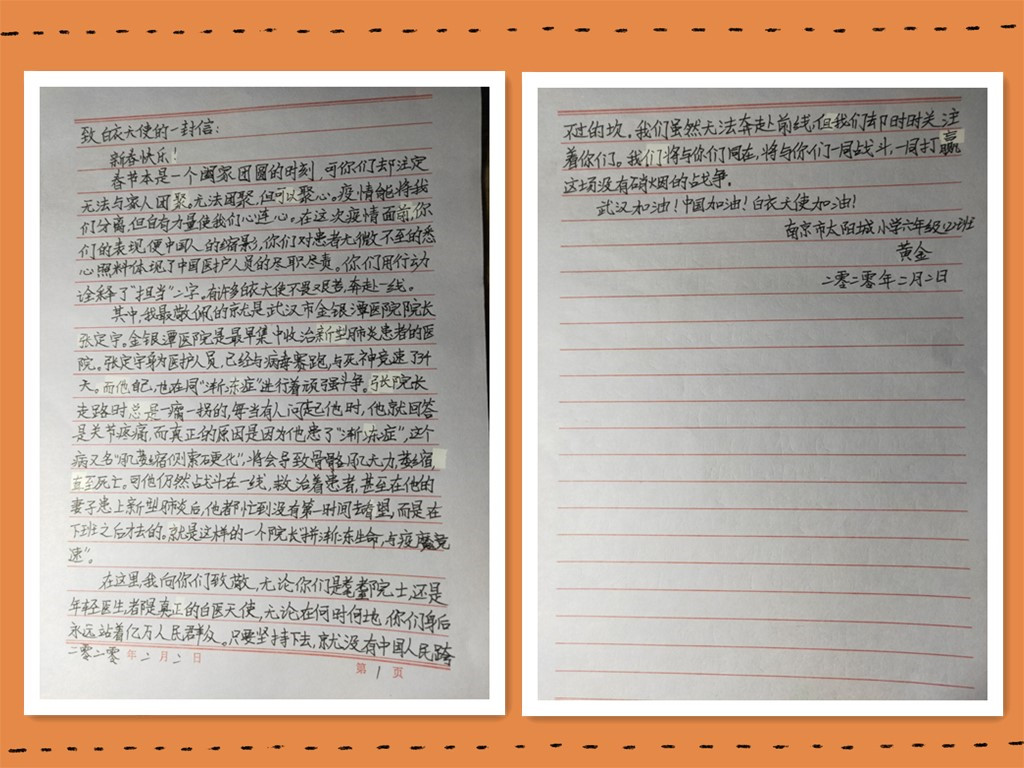 致白衣天使的一封信：
新春快乐！
春节本是一个阖家团圆的时刻，可你们却注定
无法与家人团聚。无法团聚，但可以聚心。疫情能将我
们分离，但自有力量使我们心连心。在这次疫情面前，你
们的表现便中国人的缩影，你们对患者无微不至的悉
心照料体现了中国医护人员的尽职尽责。你们用行动
诠释了“担当”二字。有许多白衣天使不畏艰苦，奔赴一线。
其中，我最敬佩的就是武汉市金银潭医院院长
张定宇。金银潭医院是最早集中收治新型肺炎患者的医
院。张定宇身为医护人员，已经与病毒赛跑，与死神竞速了34
天。而他自己，也在同“渐冻症”进行着顽强斗争。张院长
走路时总是一瘸一拐的，每当有人问起他时，他就回答
是关节疼痛，而真正的原因是因为他患了“渐冻症”，这个
病又名“肌萎缩侧索硬化”，将会导致骨骼肌无力，萎缩，
直至死亡。可他仍然战斗在一线，救治着患者，甚至在他的
妻子患上新型肺炎后，他都忙到没有第一时间去看望，而是在
下班之后才去的。就是这样的一个院长“拼渐冻生命，与疫魔竞
速”。
在这里，我向你们致敬，无论你们是耄耋院士，还是
年轻医生，都是真正的白医天使，无论在何时何地，你们身后
永远站着亿万人民群众。只要坚持下去，就没有中国人民跨
二零二零年二月二日
第1页
不过的坎。我们虽然无法奔赴前线，但我们却时时关注
着你们。我们将与你们同在，将与你们一同战斗，一同打赢
这场没有硝烟的战争。
武汉加油！中国加油！白衣天使加油！
南京市太阳城小学六年级(2)班
黄金
二零二零年二月二日